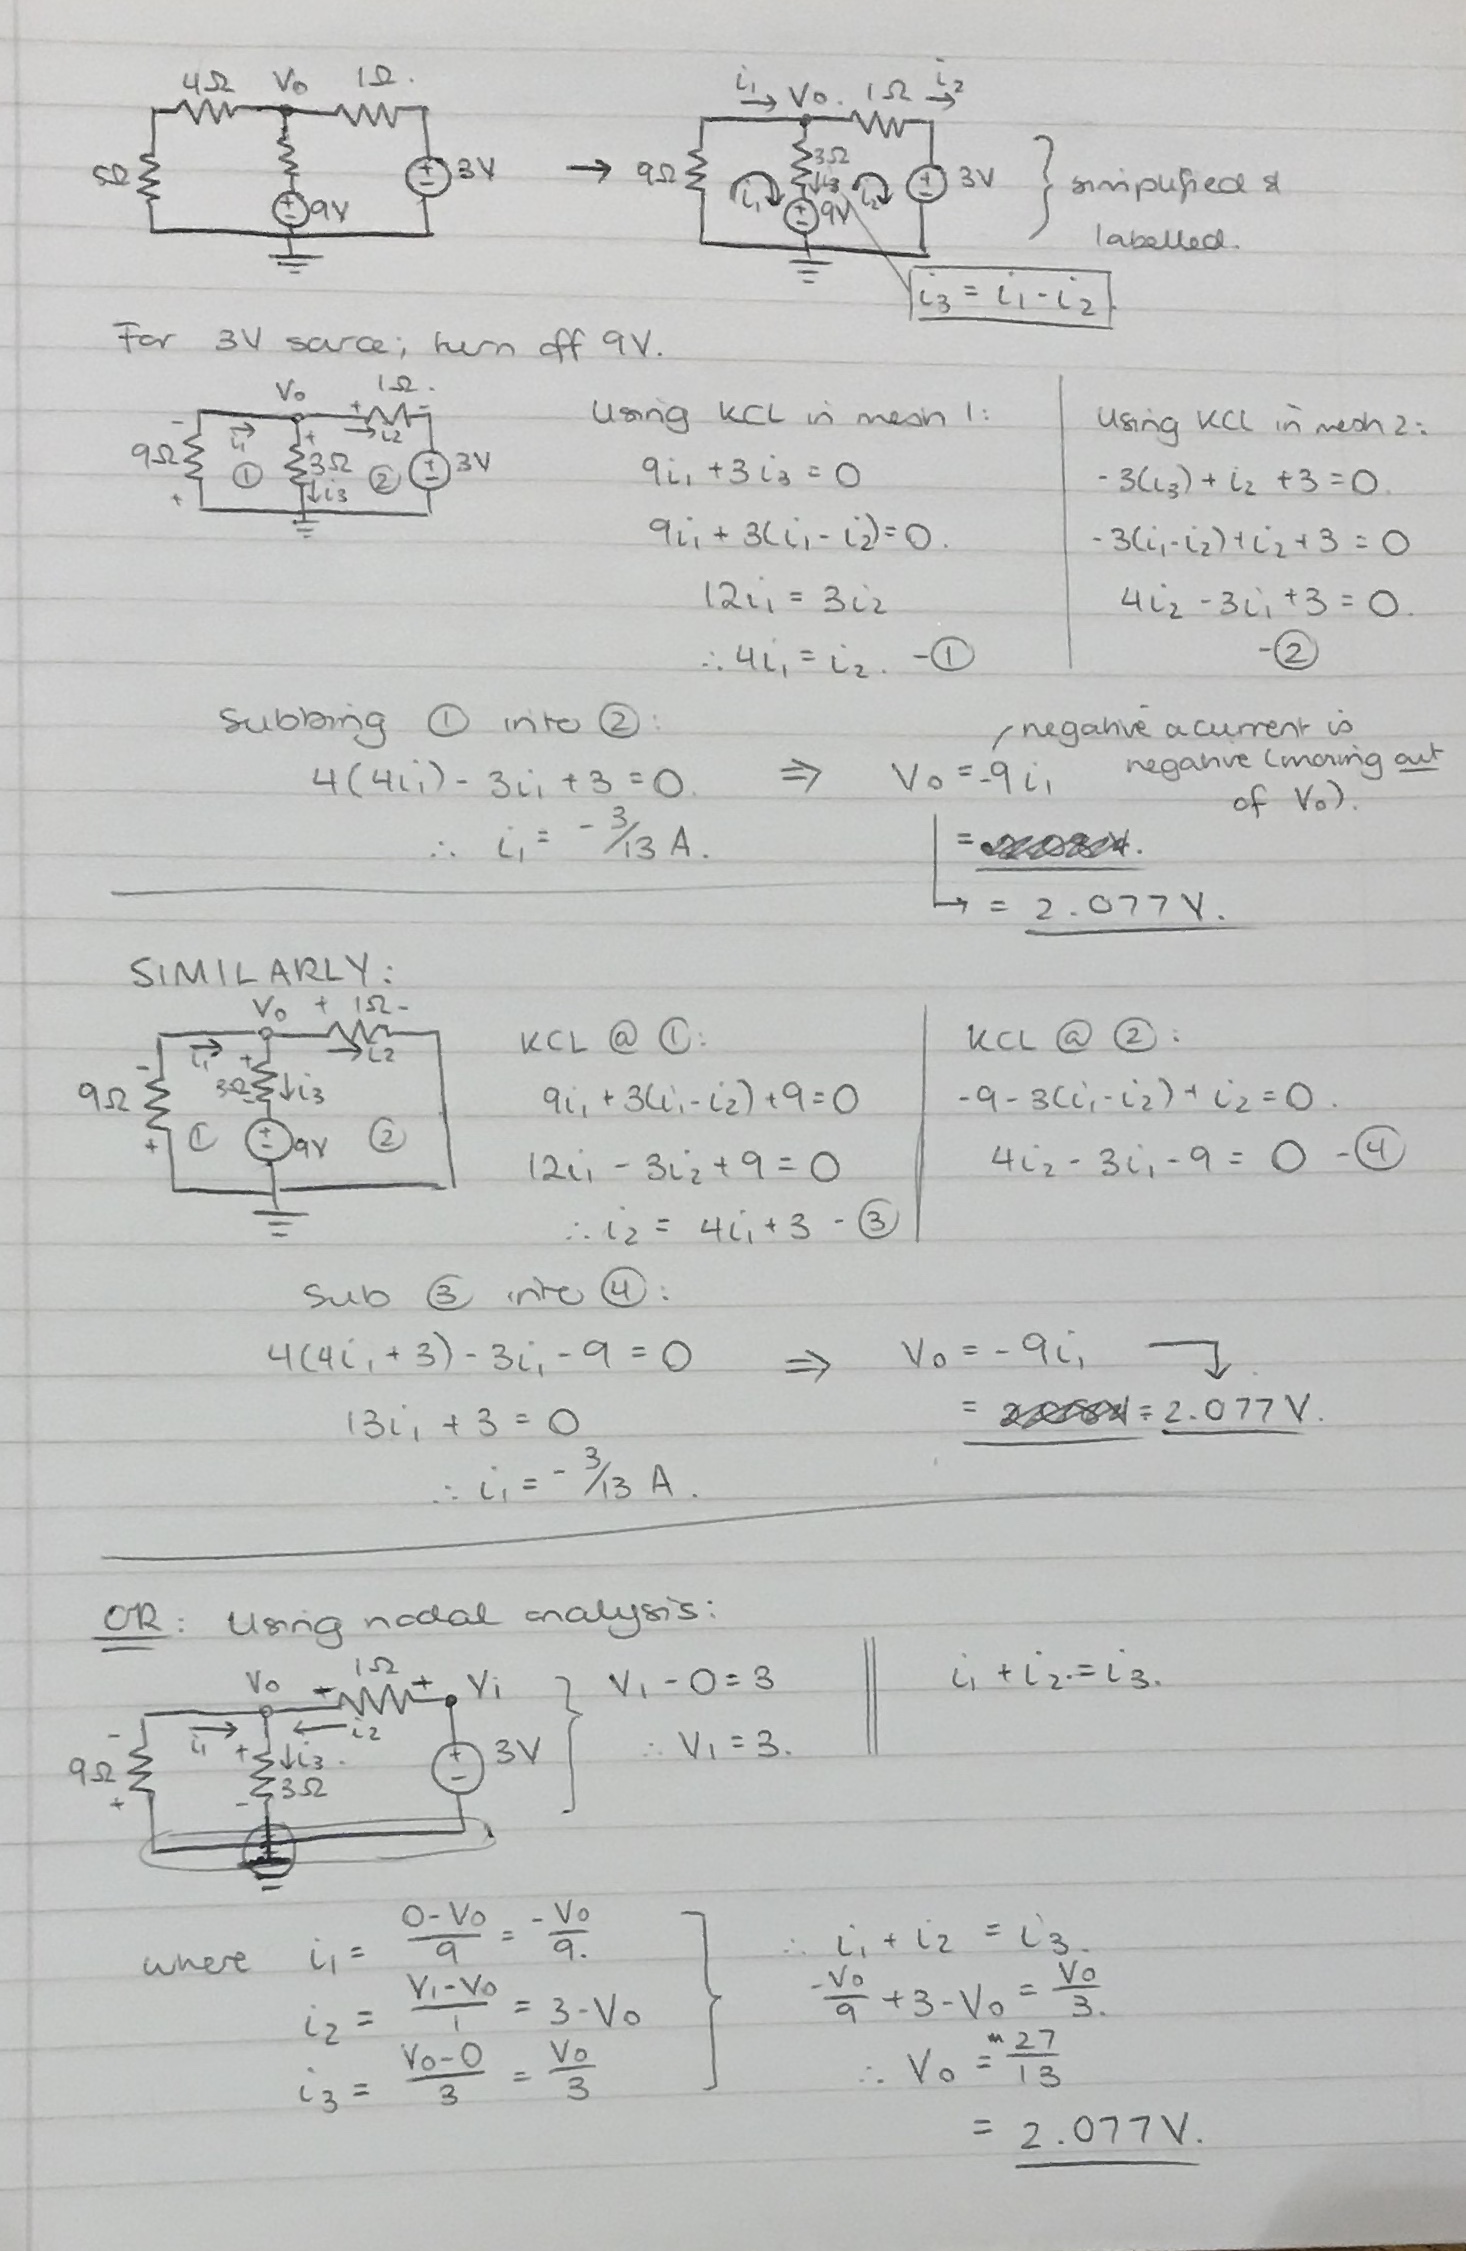 4Ω V₀ 1Ω.
5Ω 9V 3V
→
i₁ → V₀. 1Ω i₂ →
9Ω 3Ω i₃ i₁ i₂ 9V 3V
} simplified &
labelled.
i₃ = i₁ - i₂
For 3V source; turn off 9V.
V₀ 1Ω.
+ - i₁ i₂
9Ω ① 3Ω ② 3V
i₃
Using KCL in mesh 1:
9i₁ + 3i₃ = 0
9i₁ + 3(i₁ - i₂) = 0.
12i₁ = 3i₂
∴ 4i₁ = i₂. - ①
Using KCL in mesh 2:
-3(i₃) + i₂ + 3 = 0.
-3(i₁-i₂) + i₂ + 3 = 0
4i₂ - 3i₁ + 3 = 0.
- ②
Subbing ① into ②:
4(4i₁) - 3i₁ + 3 = 0.
∴ i₁ = -3/13 A.
⇒ V₀ = -9i₁
negative a current is
negative (moving out
of V₀).
= 2.077V.
SIMILARLY:
V₀ + 1Ω -
i₁ i₂
9Ω 3Ω i₃
① 9V ②
KCL @ ①:
9i₁ + 3(i₁-i₂) + 9 = 0
12i₁ - 3i₂ + 9 = 0
∴ i₂ = 4i₁ + 3 - ③
KCL @ ②:
-9 - 3(i₁-i₂) + i₂ = 0.
4i₂ - 3i₁ - 9 = 0 - ④
Sub ③ into ④:
4(4i₁ + 3) - 3i₁ - 9 = 0
13i₁ + 3 = 0
∴ i₁ = -3/13 A.
⇒ V₀ = -9i₁
= 2.077V.
OR: Using nodal analysis:
V₀ 1Ω V₁
- + i₁ i₂
9Ω i₃. 3Ω 3V
} V₁ - 0 = 3
∴ V₁ = 3.
i₁ + i₂ = i₃.
where i₁ = 0-V₀/9 = -V₀/9.
i₂ = V₁-V₀/1 = 3-V₀
i₃ = V₀-0/3 = V₀/3
∴ i₁ + i₂ = i₃.
-V₀/9 + 3-V₀ = V₀/3.
∴ V₀ = 27/13
= 2.077V.